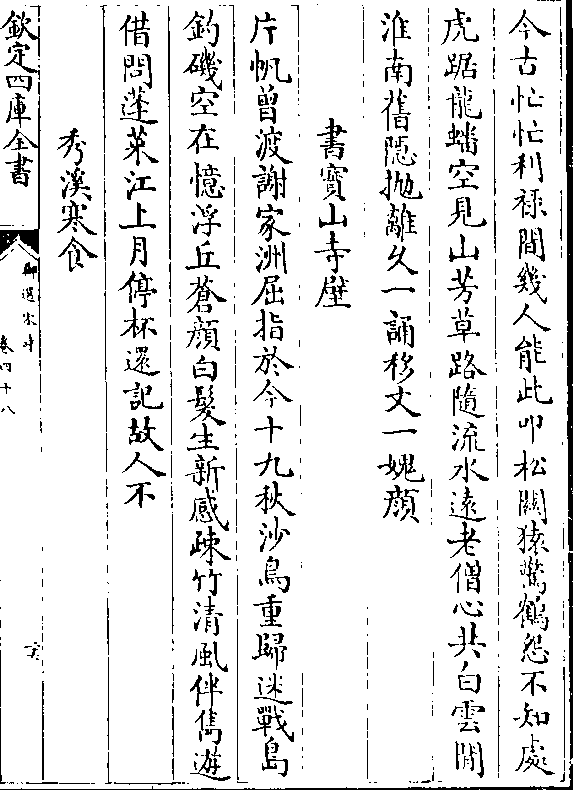 今古忙忙利祿間幾人能此叩松關猿驚鶴怨不知處
虎踞龍蟠空見山芳草路隨流水遠老僧心共白雲閒
淮南舊隱抛離久一誦移文一媿顔
書寳山寺壁
片帆曾渡謝家洲屈指於今十九秋沙鳥重歸迷戰島
釣磯空在憶浮丘蒼顔白髮生新感疎竹清風伴雋遊
借問蓬萊江上月停杯還記故人不
秀溪寒食
欽定四庫全書
御選宋詩
卷四十八